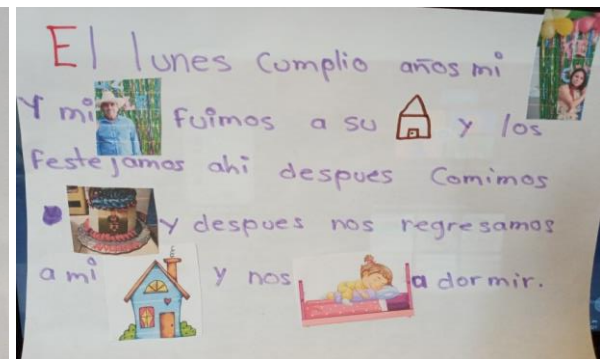 El lunes cumplio años mi
Y mi fuimos a su y los
festejamos ahi despues comimos
y despues nos regresamos
a mi y nos a dormir.